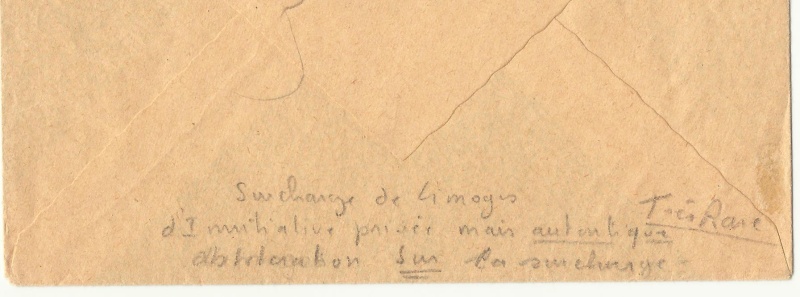 Surcharge de Limoges
d'Innitiative privée mais autentique
Très Rare
obliteration sur la surcharge -